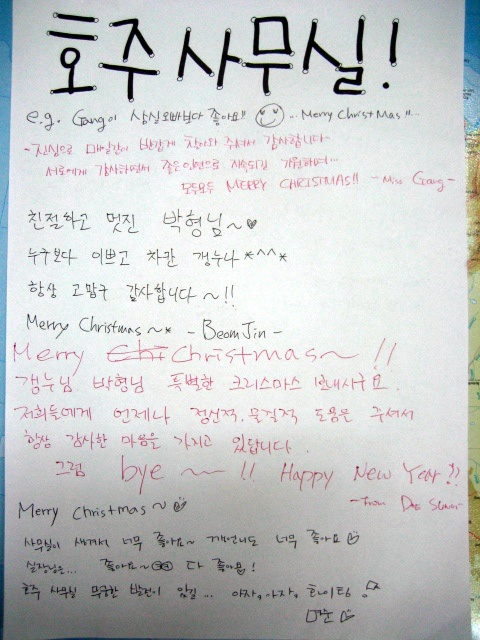 호주사무실!
e.g. Gang이 삼실오빠보다 좋아요!! ... Merry Christmas!!...
-진심으로 매일같이 반갑게 찾아와 주셔서 감사합니다-
서로에게 감사하면서 좋은인연으로 지속되길 기원하며...
모두모두 MERRY CHRISTMAS!! -Miss Gang-
친절하고 멋진 박형님~♥
누구보다 이쁘고 차칸 갱누나*^^*
항상 고맙구 감사합니다~!!
Merry Christmas~* - BeomJin -
Merry Christmas~ !!
갱누님 박형님 특별한 크리스마스 보내시구요.
저희들에게 언제나 정신적.물질적 도움을 주셔서
항상 감사한 마음을 가지고 있답니다.
그럼 bye ~~ !! Happy New Year!!
-From
Merry Christmas~
사무실이 생겨서 너무 좋아요~ 너무 좋아요
실장님은... 좋아요~ 다 좋아요!
호주 사무실 무궁한 발전이 있길... 아자, 아자, 화이팅!